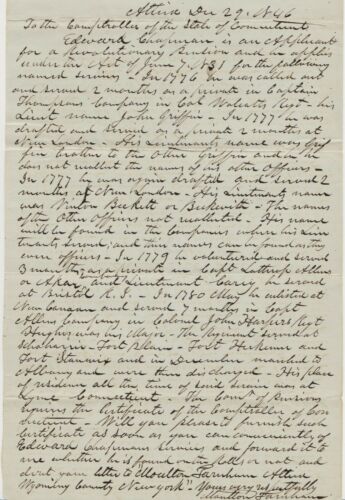 Attica Dec 29. 1846
To the Comptroller of the State of Connecticut
Edward Chapman is an Applicant
for a Revolutionary Pension and he applies
under the Act of June 7, 1832 for the following
named services - In 1776 he was called out
and served 2 months as a private in Captain
Thompsons Company in Col Regt - his
Lieut name John Griffin - In 1777 he was
drafted and served as a private 2 months at
New London - His Lieutenants name was Grif
fin brother to the Other Griffin and he
does not recollect the names of his other Officers -
In 1777 he was again drafted and served 2
months at New London - His Lieutenants name
was Beckett or Beckwith - The names
of the Other Officers not recollected - His name
will be found in the Companies when his Lieu
tenants served, and their names can be found as they
were officers - In 1779 he volunteered and served
3 months as a private in Capt Lathrop Allen
or and Lieutenant he served
at Bristol R. I. - In 1780 May he enlisted at
New Canaan and served 7 months in Capt
Allens Company in Colonel John Harpers Regt
Hughes was his Major - The regiment served at
Schoharie - Fort Plain - Fort Herkimer and
Fort Stanwix and in December marched to
Albany and were then discharged - His place
of residence all the time of said service was at
Lyme Connecticut - The Comr of Pensions
requires the Certificate of the Comptroller of Con
necticut - Will you please to furnish such
Certificate as soon as you can conveniently of
Edward Chapmans service and forward it to
me whether he is found on the Rolls or not and
direct your letter to Moulton Farnham Attica
Wyoming County New York" Yours very respectfully
Moulton Farnham